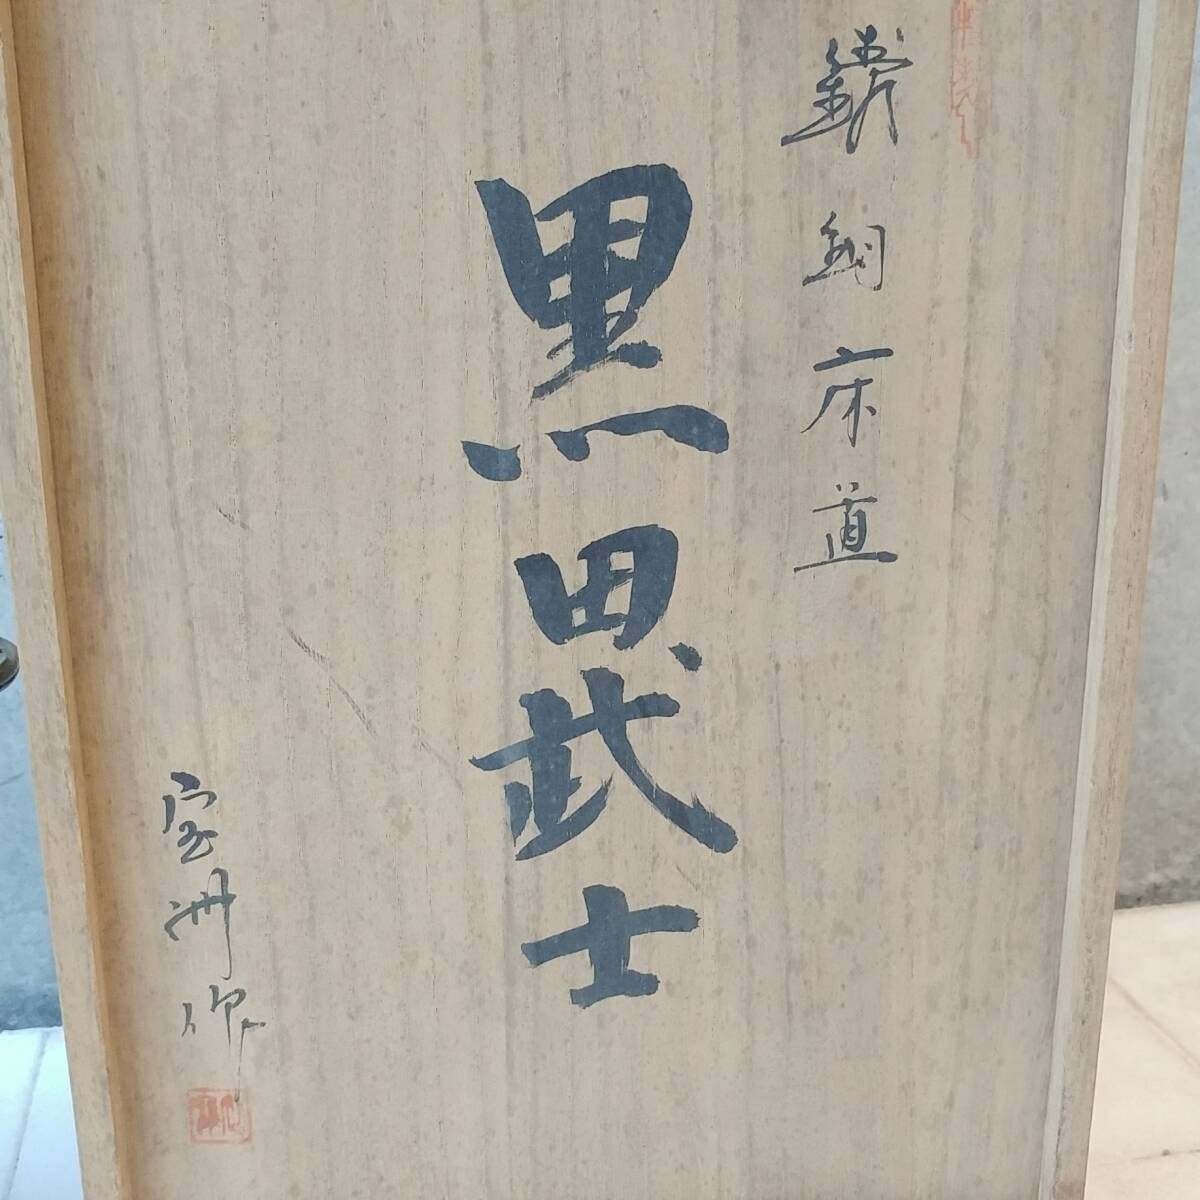 鋳銅床置
黒田武士
宝洲作